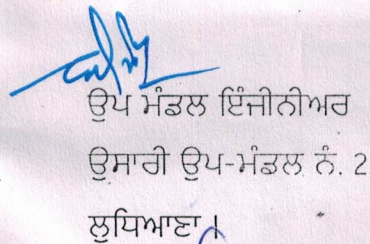 ਉਪ ਮੰਡਲ ਇੰਜੀਨੀਅਰ
ਉਸਾਰੀ ਉਪ-ਮੰਡਲ ਨੰ. 2
ਲੁਧਿਆਣਾ।